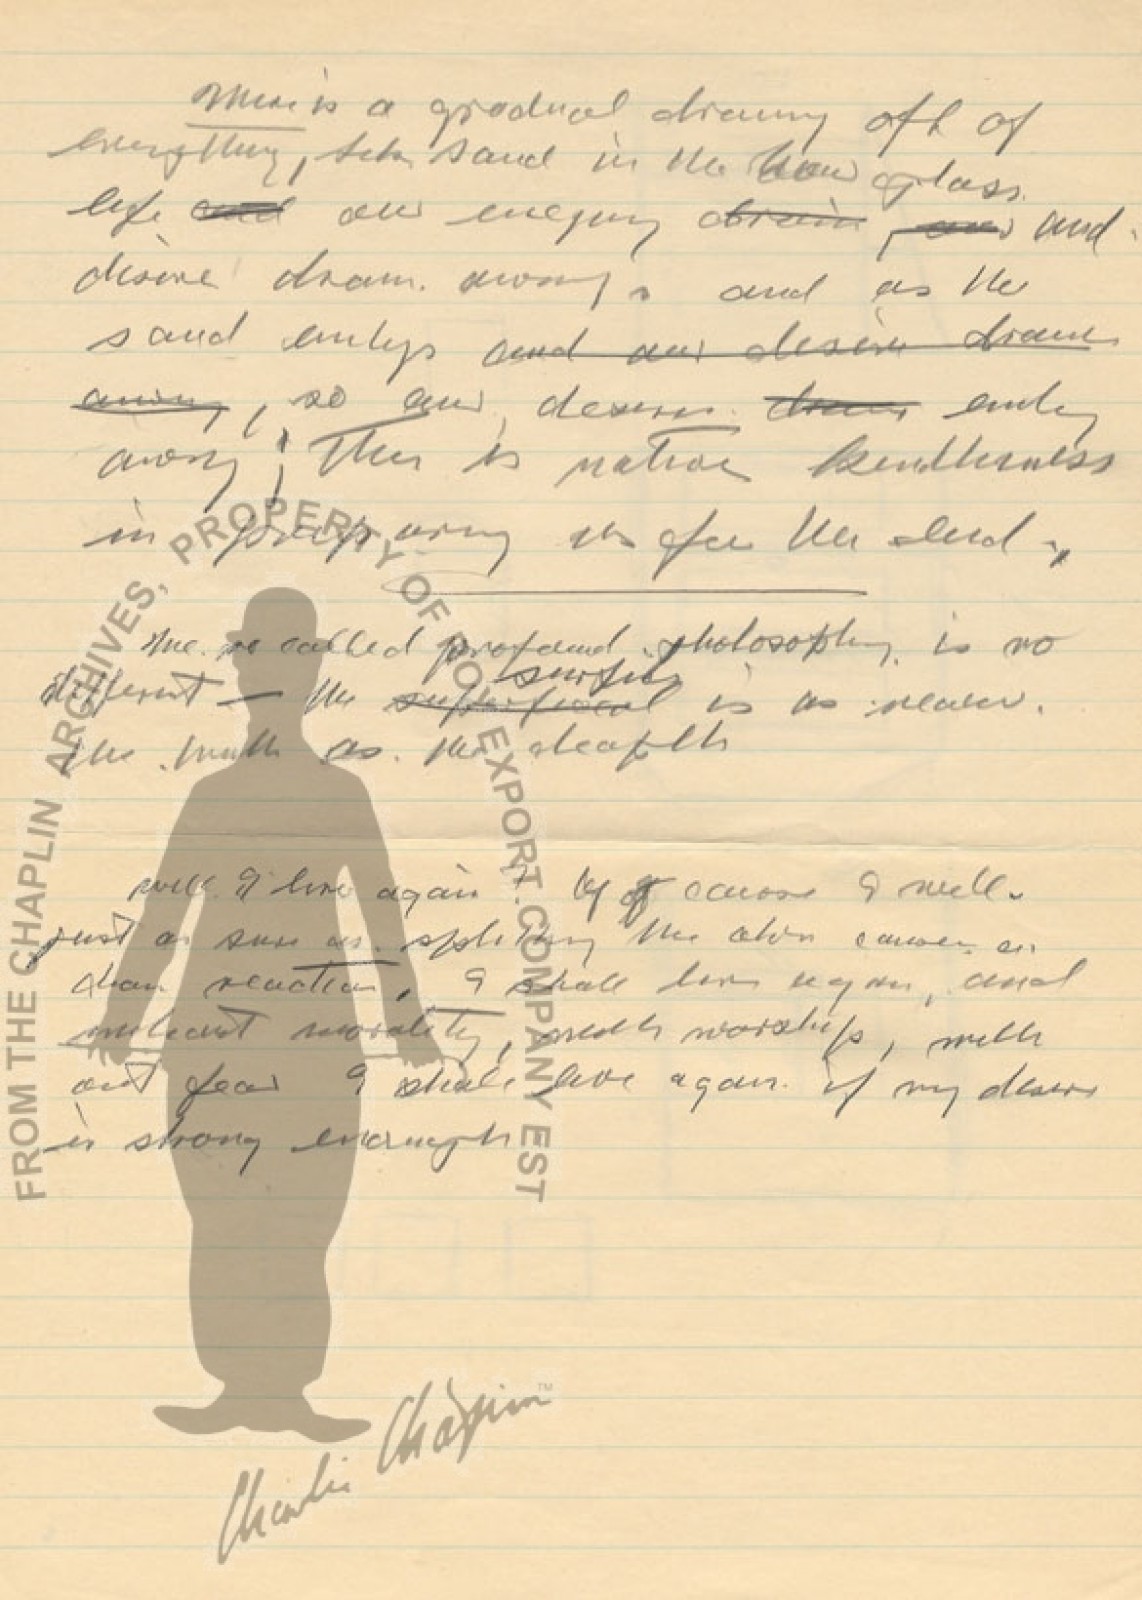 There is a gradual draining off of
everything, like sand in the hour glass.
life and our energy drain, our and
desire drain away, and as the
sand emptys and our desire drains
away, so our desires drain empty
away; This is natures kindliness
in preparing us for the end.
The so called profound philosophy is no
different — the surface
superficial is as near
the truth as the depth
will I live again? by of course I will.
just as sure as splitting the atom causes a
chain reaction, I shall live again, and
without morality, with worship, with
out fear I shall live again if my desire
is strong enough
FROM THE CHAPLIN ARCHIVES, PROPERTY OF ROY EXPORT COMPANY EST
Charlie Chaplin™